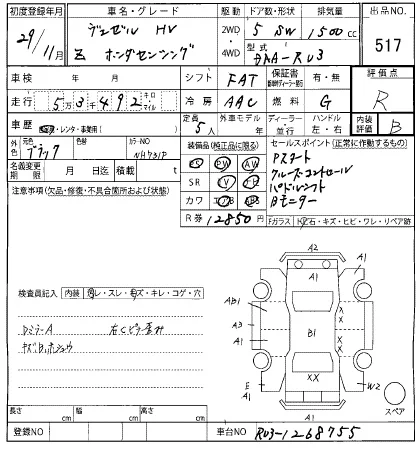 初度登録年月 車名・グレード 駆動 ドア数・形状 排気量 出品NO.
29/11月 HV 2WD・4WD 5 SW 1500cc 517
Z ホンダセンシング 型式 DAA-RU3
車検 年 月 シフト FAT 保証書 有・無 評価点
走行 5万3千492 キロ マイル 冷房 AAC 燃料 G R
車歴 レンタ・事業用 定員 5人 外車モデル年 ディーラー・並行 ハンドル 左・右 内装評価 B
外色 元色 ブラック 色替 カラーNO NH731P 装備品(純正品に限る) セールスポイント(正常に作動するもの)
名義変更期限 月 日迄 積載 t PS PW Pスタート
注意事項(欠品・修復・不具合箇所および状態) SR クルーズコントロール
カワ エアB ABS パドルシフト
R券 12850円 Bモニター
Fガラス 石・キズ・ヒビ・ワレ・リペア跡
検査員記入 内装 レ・スレ・キズ・キレ・コゲ・穴
DミラーA 右Cピラー歪み
A2
A1
A1
AB1
A3
A1
B1
X
X
XX
E
A1
A1
W2
スペア
長さ cm 幅 cm 高さ cm
登録NO 車台NO RU3-1268755